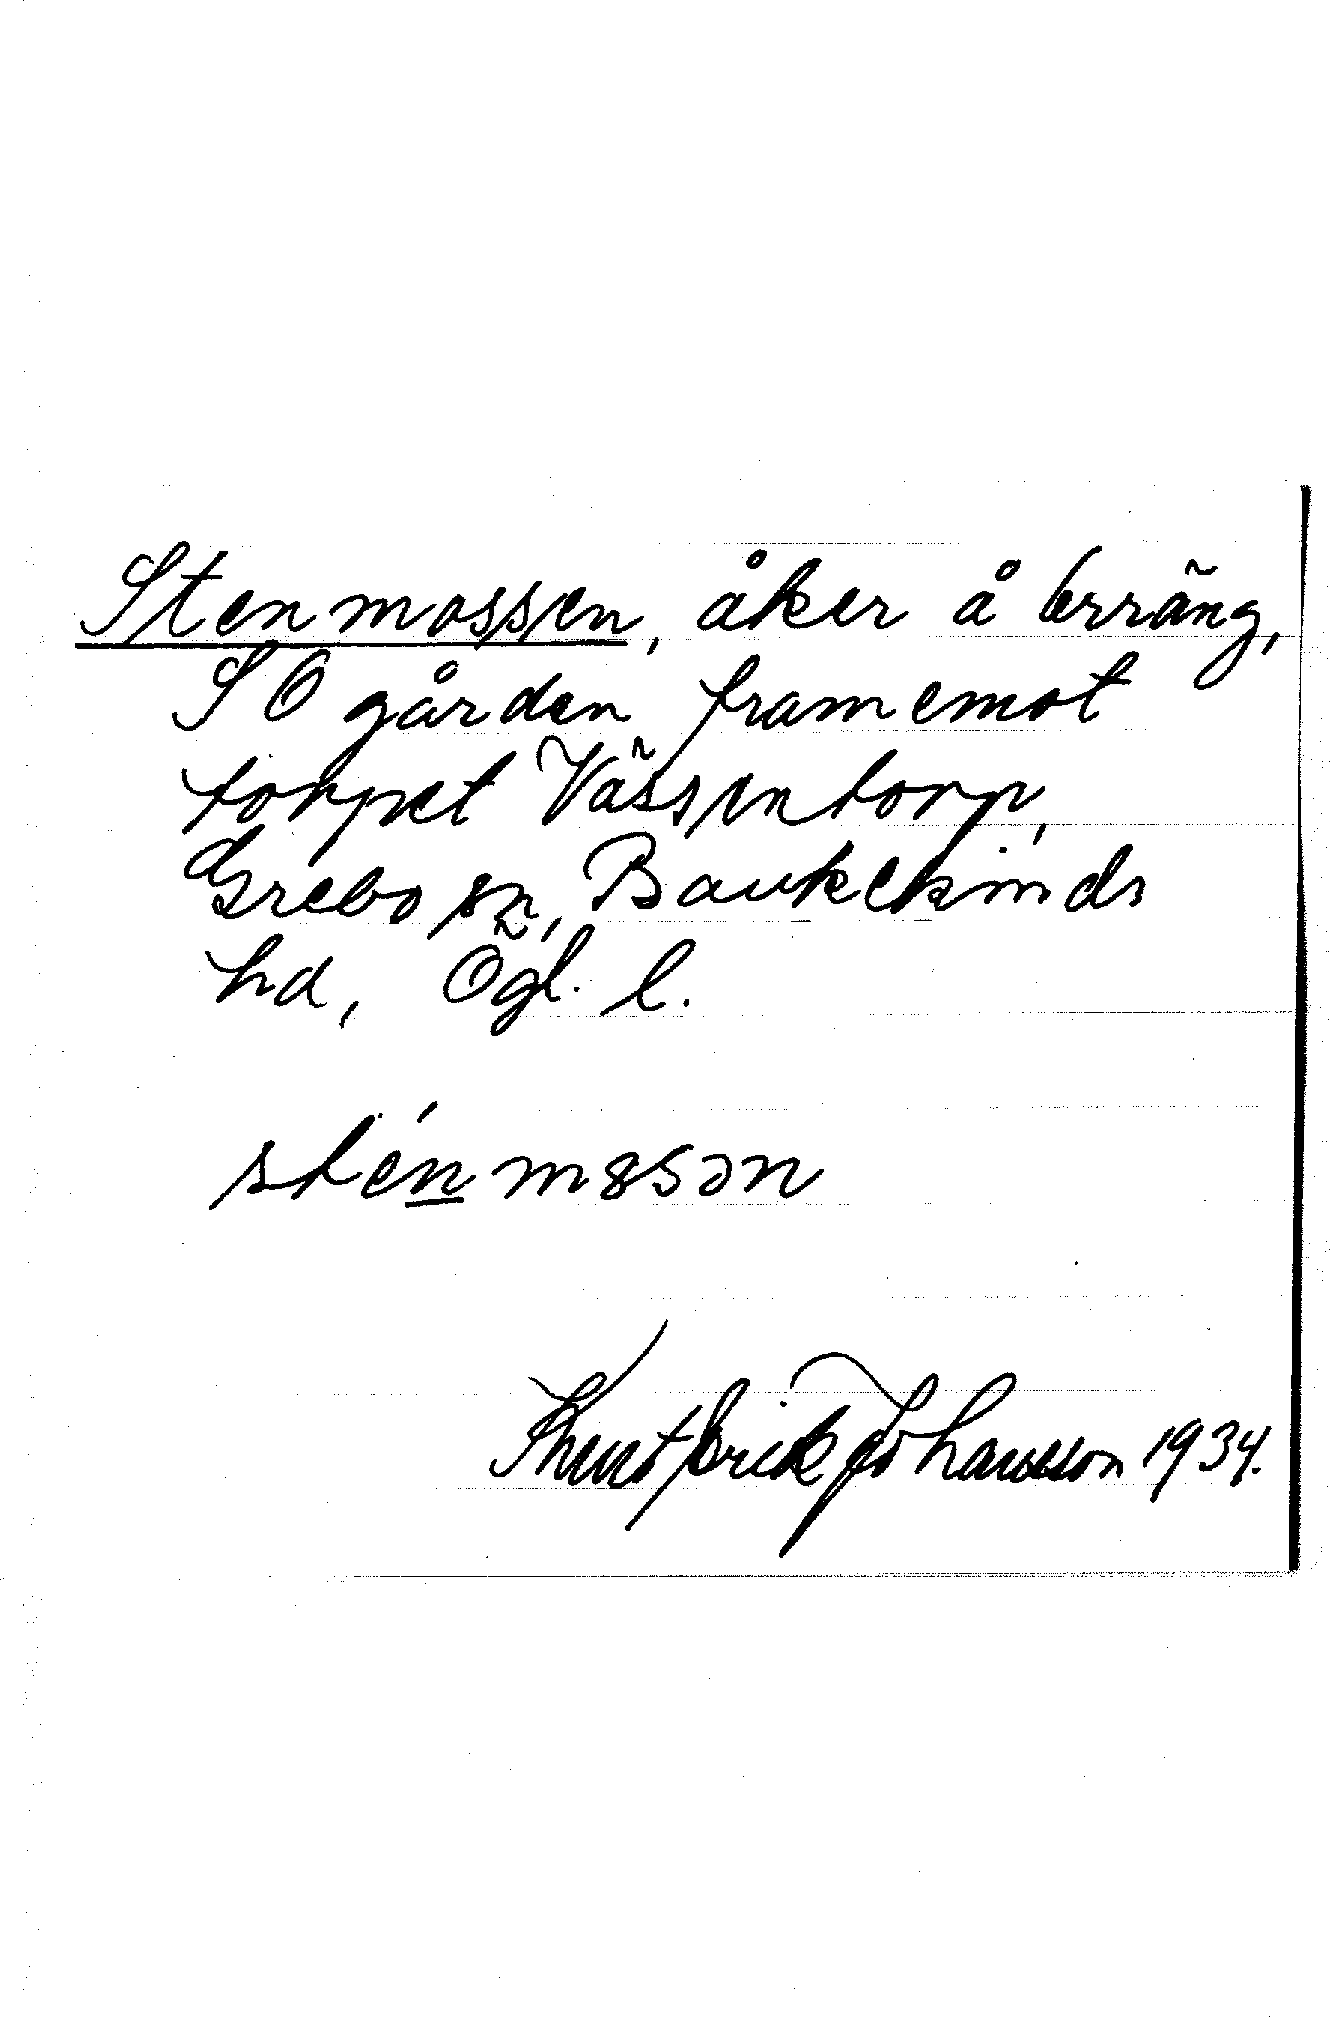 Stenmossen, åker å Erräng,
SO gården framemot
torpet Vässentorp,
Grebo sn, Bankekinds
hd, Ögl. l.
sténmȣsən
Knut Erick Johansson 1934.